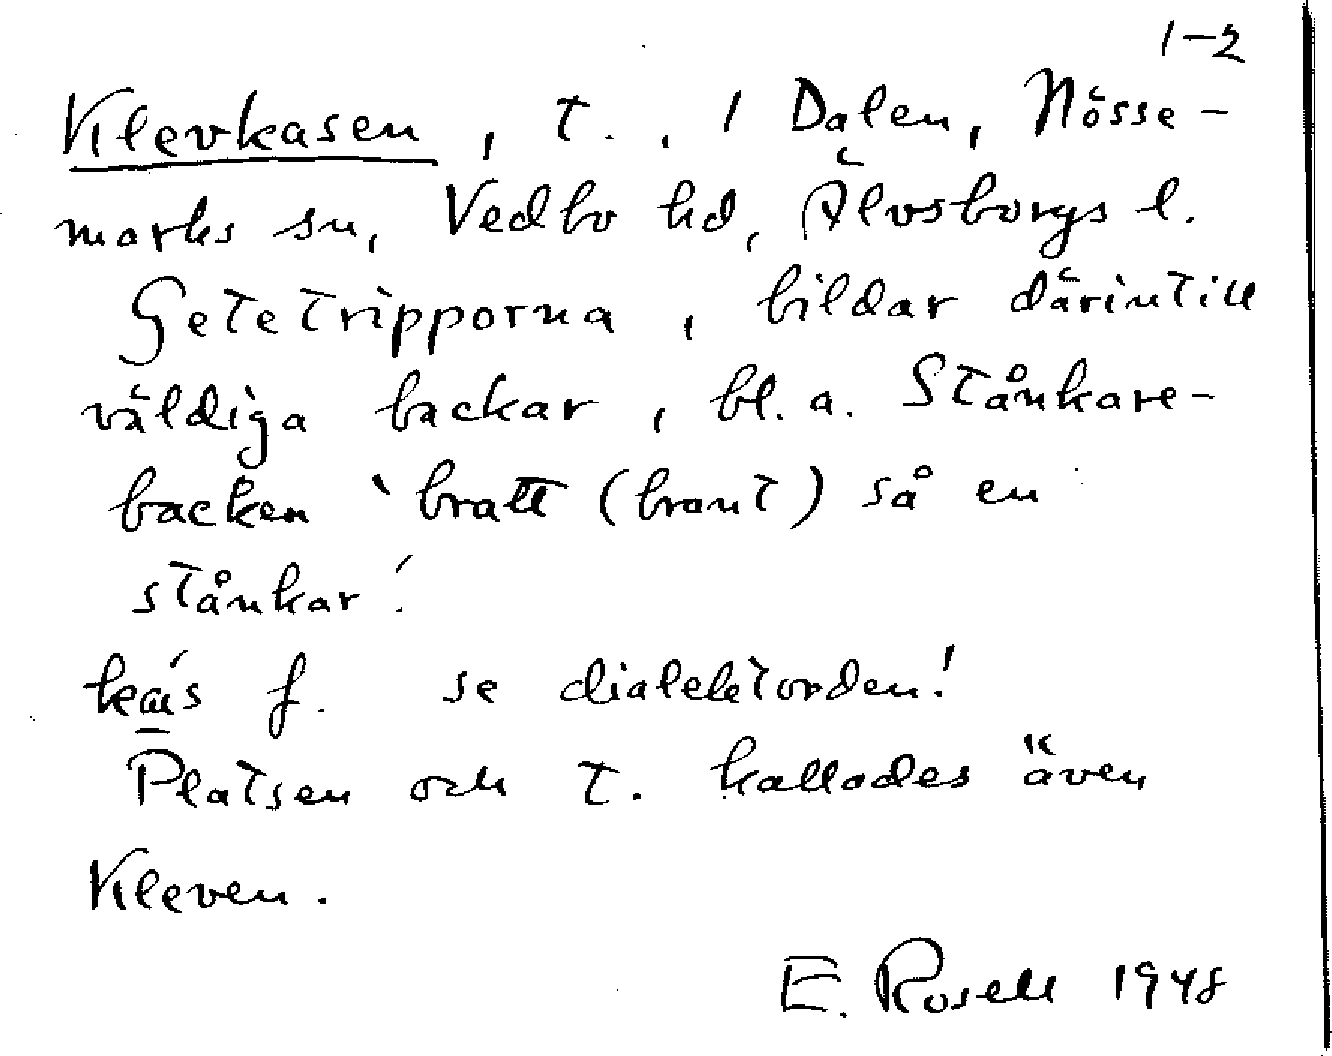 1-2
Klevkasen, t., 1 Dalen, Nösse-
marks sn, Vedbo hd, Älvsborgs l.
Getetripporna, bildar därintill
väldiga backar, bl. a. Stånkare-
backen 'bratt (brant) så en
stånkar'.
kas f. se dialektorden!
Platsen och t. kallades även
Kleven.
E. Rosell 1948